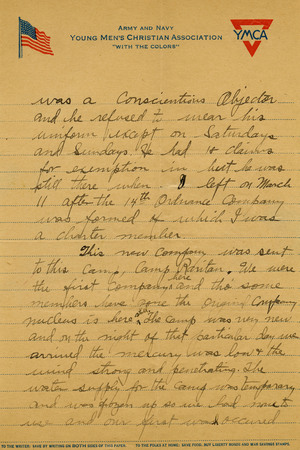 ARMY AND NAVY
YOUNG MEN'S CHRISTIAN ASSOCIATION
"WITH THE COLORS"
YMCA
was a Conscientious Objector
and he refused to wear his
uniform except on Saturdays
and Sundays. He had 18 claims
for exemption in but he was
still there when I left on March
11 after the 14th Ordnance Company
was formed of which I was
a charter member.
This new Company was sent
to this Camp, Camp Raritan. We were
the first Company here and tho some
members have gone the Company
nucleus is here. The Camp was very new
and on the night of that particular day we
arrived the mercury was low & the
wind strong and penetrating. The
water supply for the Camp was temporary
and was frozen up so we had none to
use and our first was secured
TO THE WRITER: SAVE BY WRITING ON BOTH SIDES OF THIS PAPER.
TO THE FOLKS AT HOME: SAVE FOOD, BUY LIBERTY BONDS AND WAR SAVINGS STAMPS.